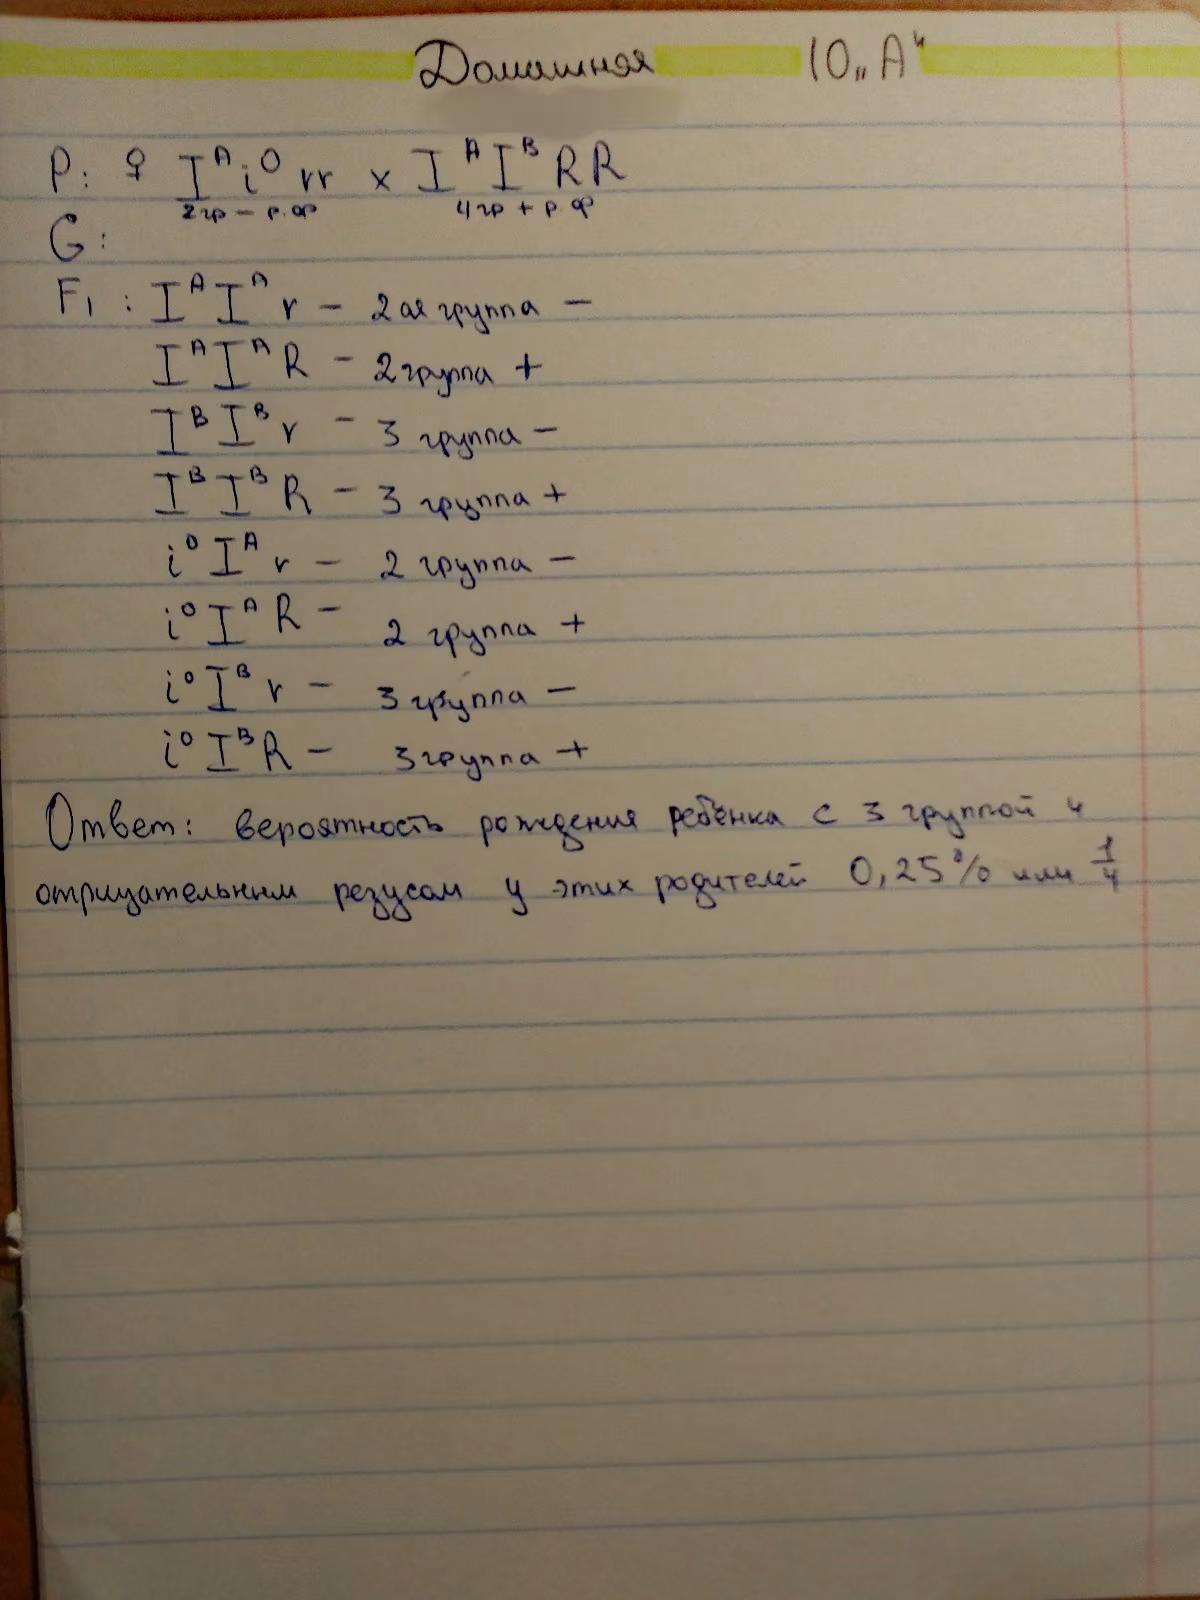 Домашняя 10 „А“
P: ♀ Iᴬi⁰ rr x IᴬIᴮRR
2 гр – р. ф 4 гр + р. ф
G:
F₁: IᴬIᴬ r – 2 ая группа –
IᴬIᴬR – 2 группа +
IᴮIᴮ r – 3 группа –
IᴮIᴮR – 3 группа +
i⁰Iᴬ r – 2 группа –
i⁰IᴬR – 2 группа +
i⁰Iᴮ r – 3 группа –
i⁰IᴮR – 3 группа +
Ответ: вероятность рождения ребёнка с 3 группой и
отрицательным резусом у этих родителей 0,25% или 1/4